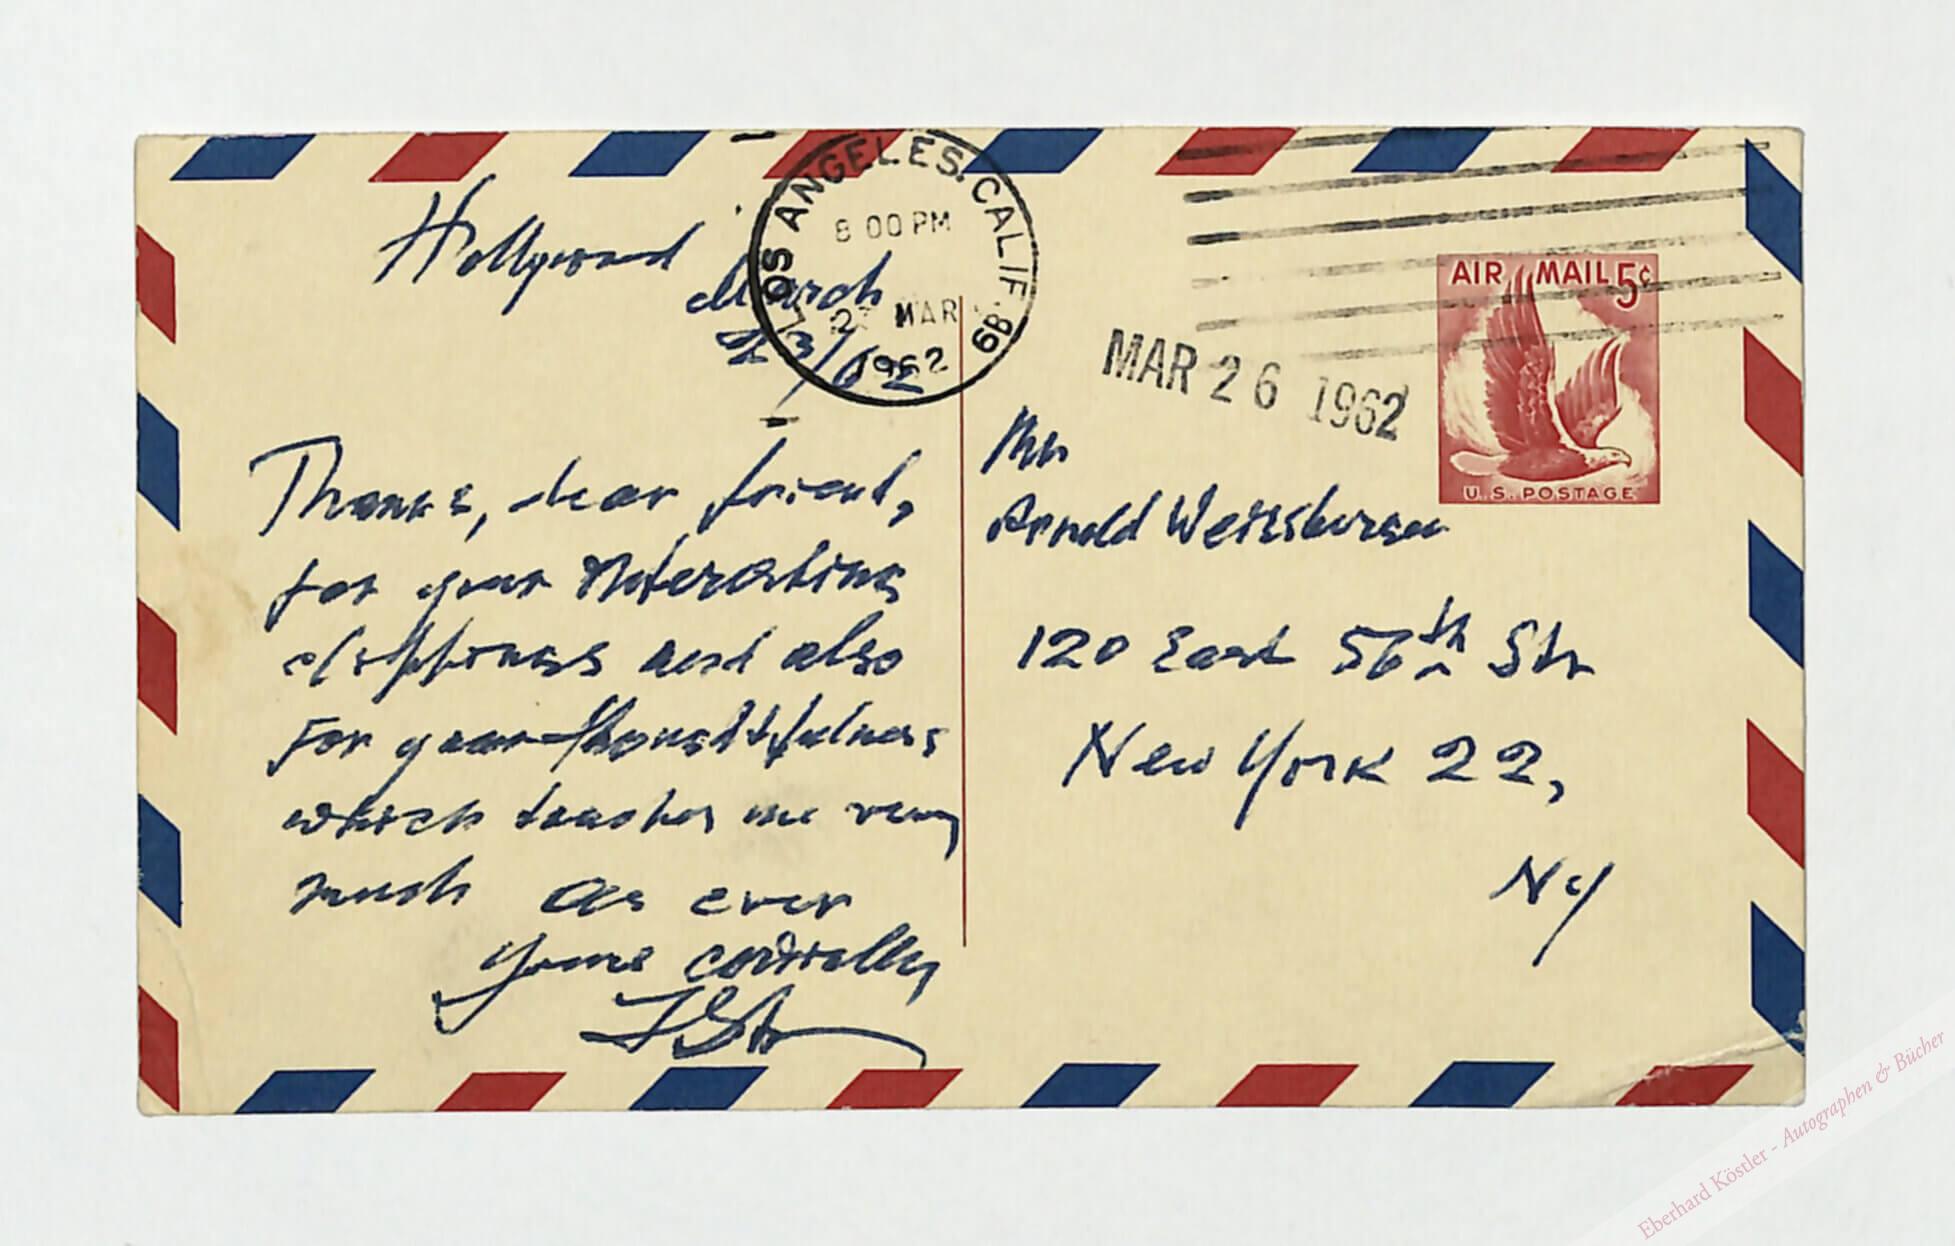 Hollywood
March
23/62
LOS ANGELES. CALIF. 6B
8 00 PM
MAR
1962
MAR 26 1962
AIR MAIL 5¢
U.S. POSTAGE
Thanks, dear friend,
for your interesting
clippings and also
for your thoughtfulness
which touches me very
much As ever
yours cordially
IStr
Mr
Arnold Weissberger
120 East 56th Str
New York 22,
NY
Eberhard Köstler - Autographen & Bücher